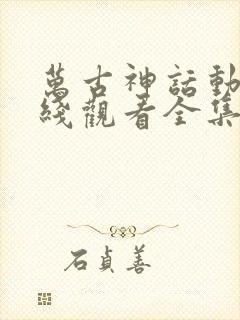 萬古神話動
綫觀看全集
石貞善